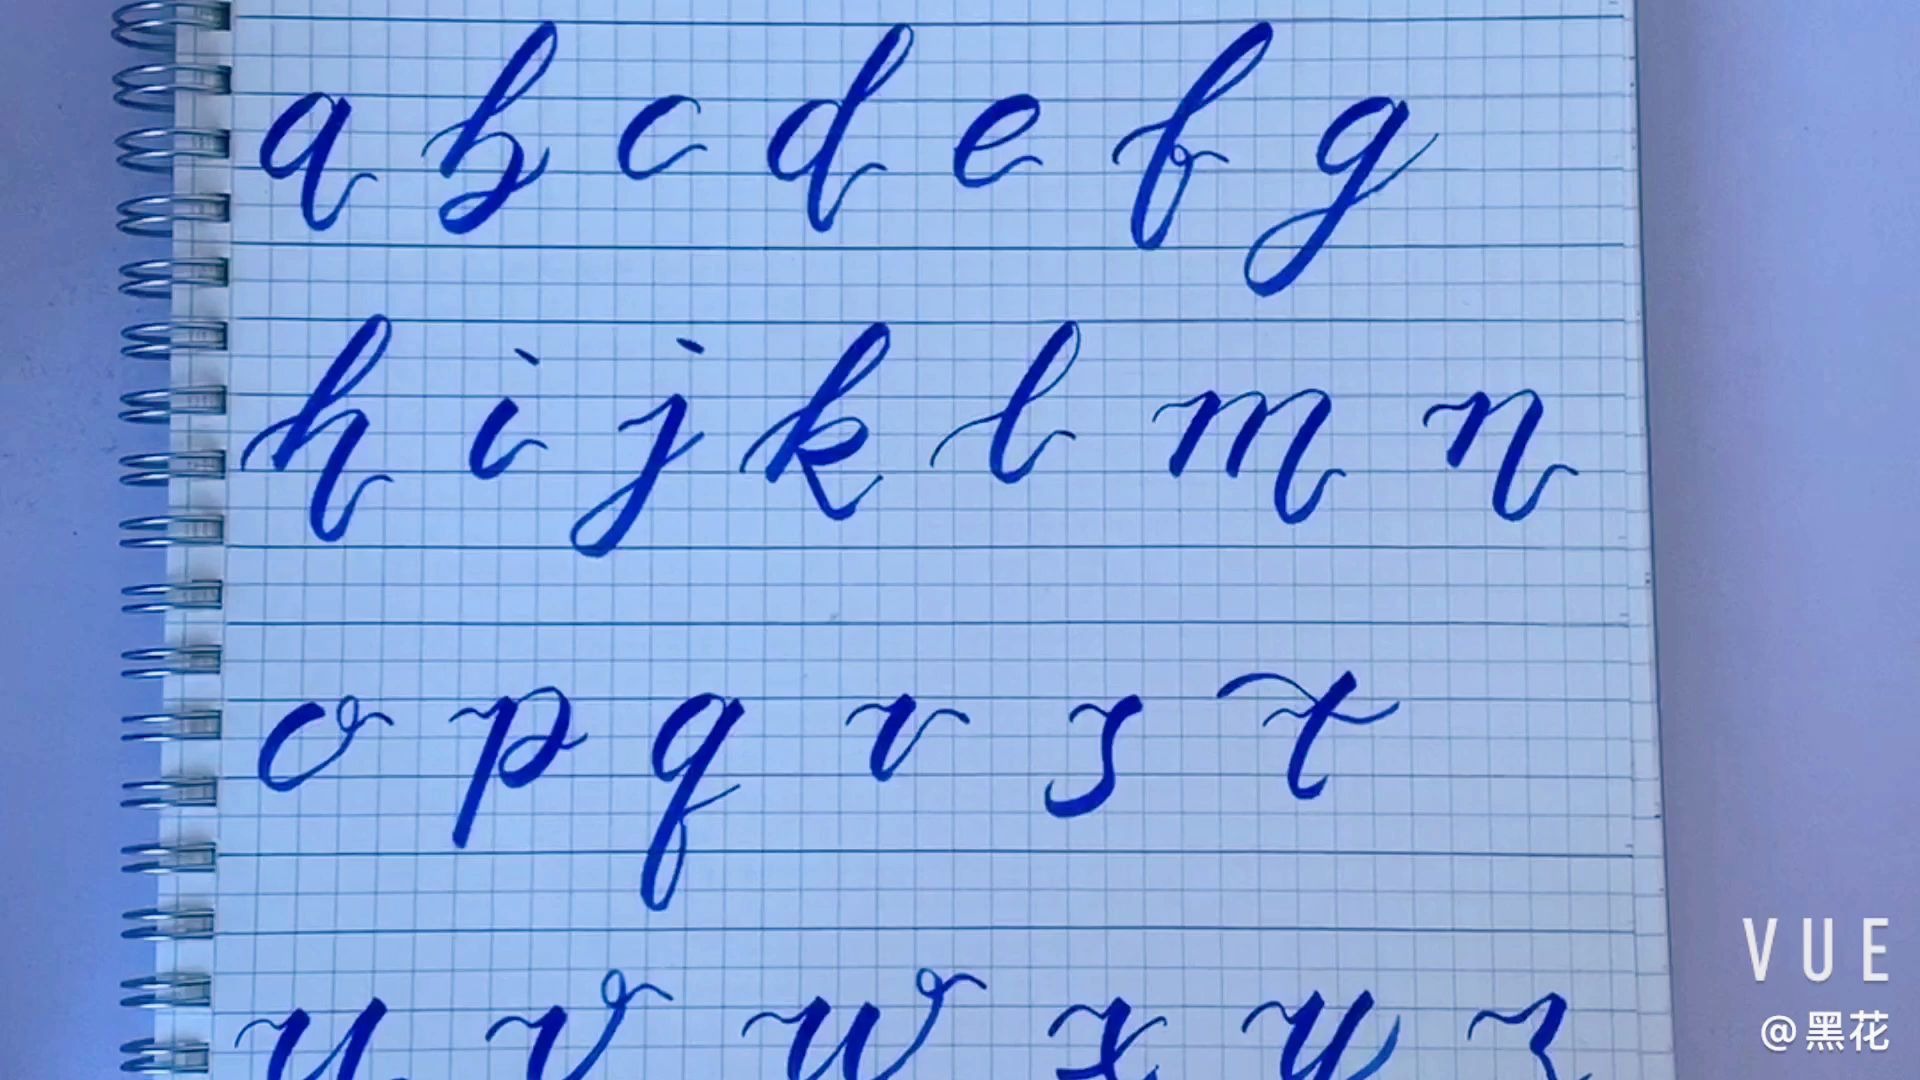 a b c d e f g
h i j k l m n
o p q r s t
u v w x y z
VUE
@黑花